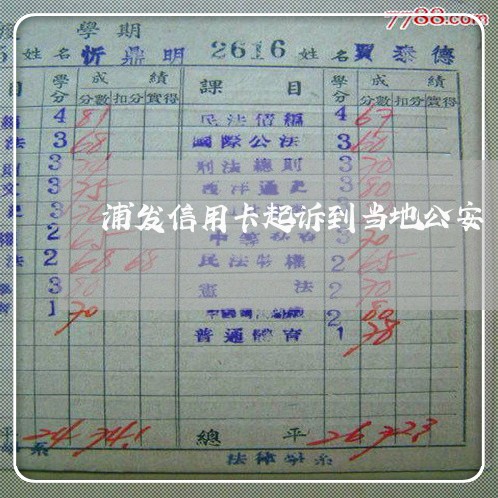 7788.com
學期
姓名 忻鼎明 2616 姓名 賈泰德
目 學分 成績 課目 學分 成績
分數 扣分 實得 分數 扣分 實得
4 81 民法債編 4 67
法 3 68 國際公法 3 60
3 刑法總則 3 70
3 75 西洋通史 3 80
浦发信用卡起诉到当地公安
2 3 70
法 2 68 68 民法物權 2 65
3 80 憲法 2 70
1 70 2 80
普通體育 1 78
平 24 74.1 總平 26 72.3
系 法律學系